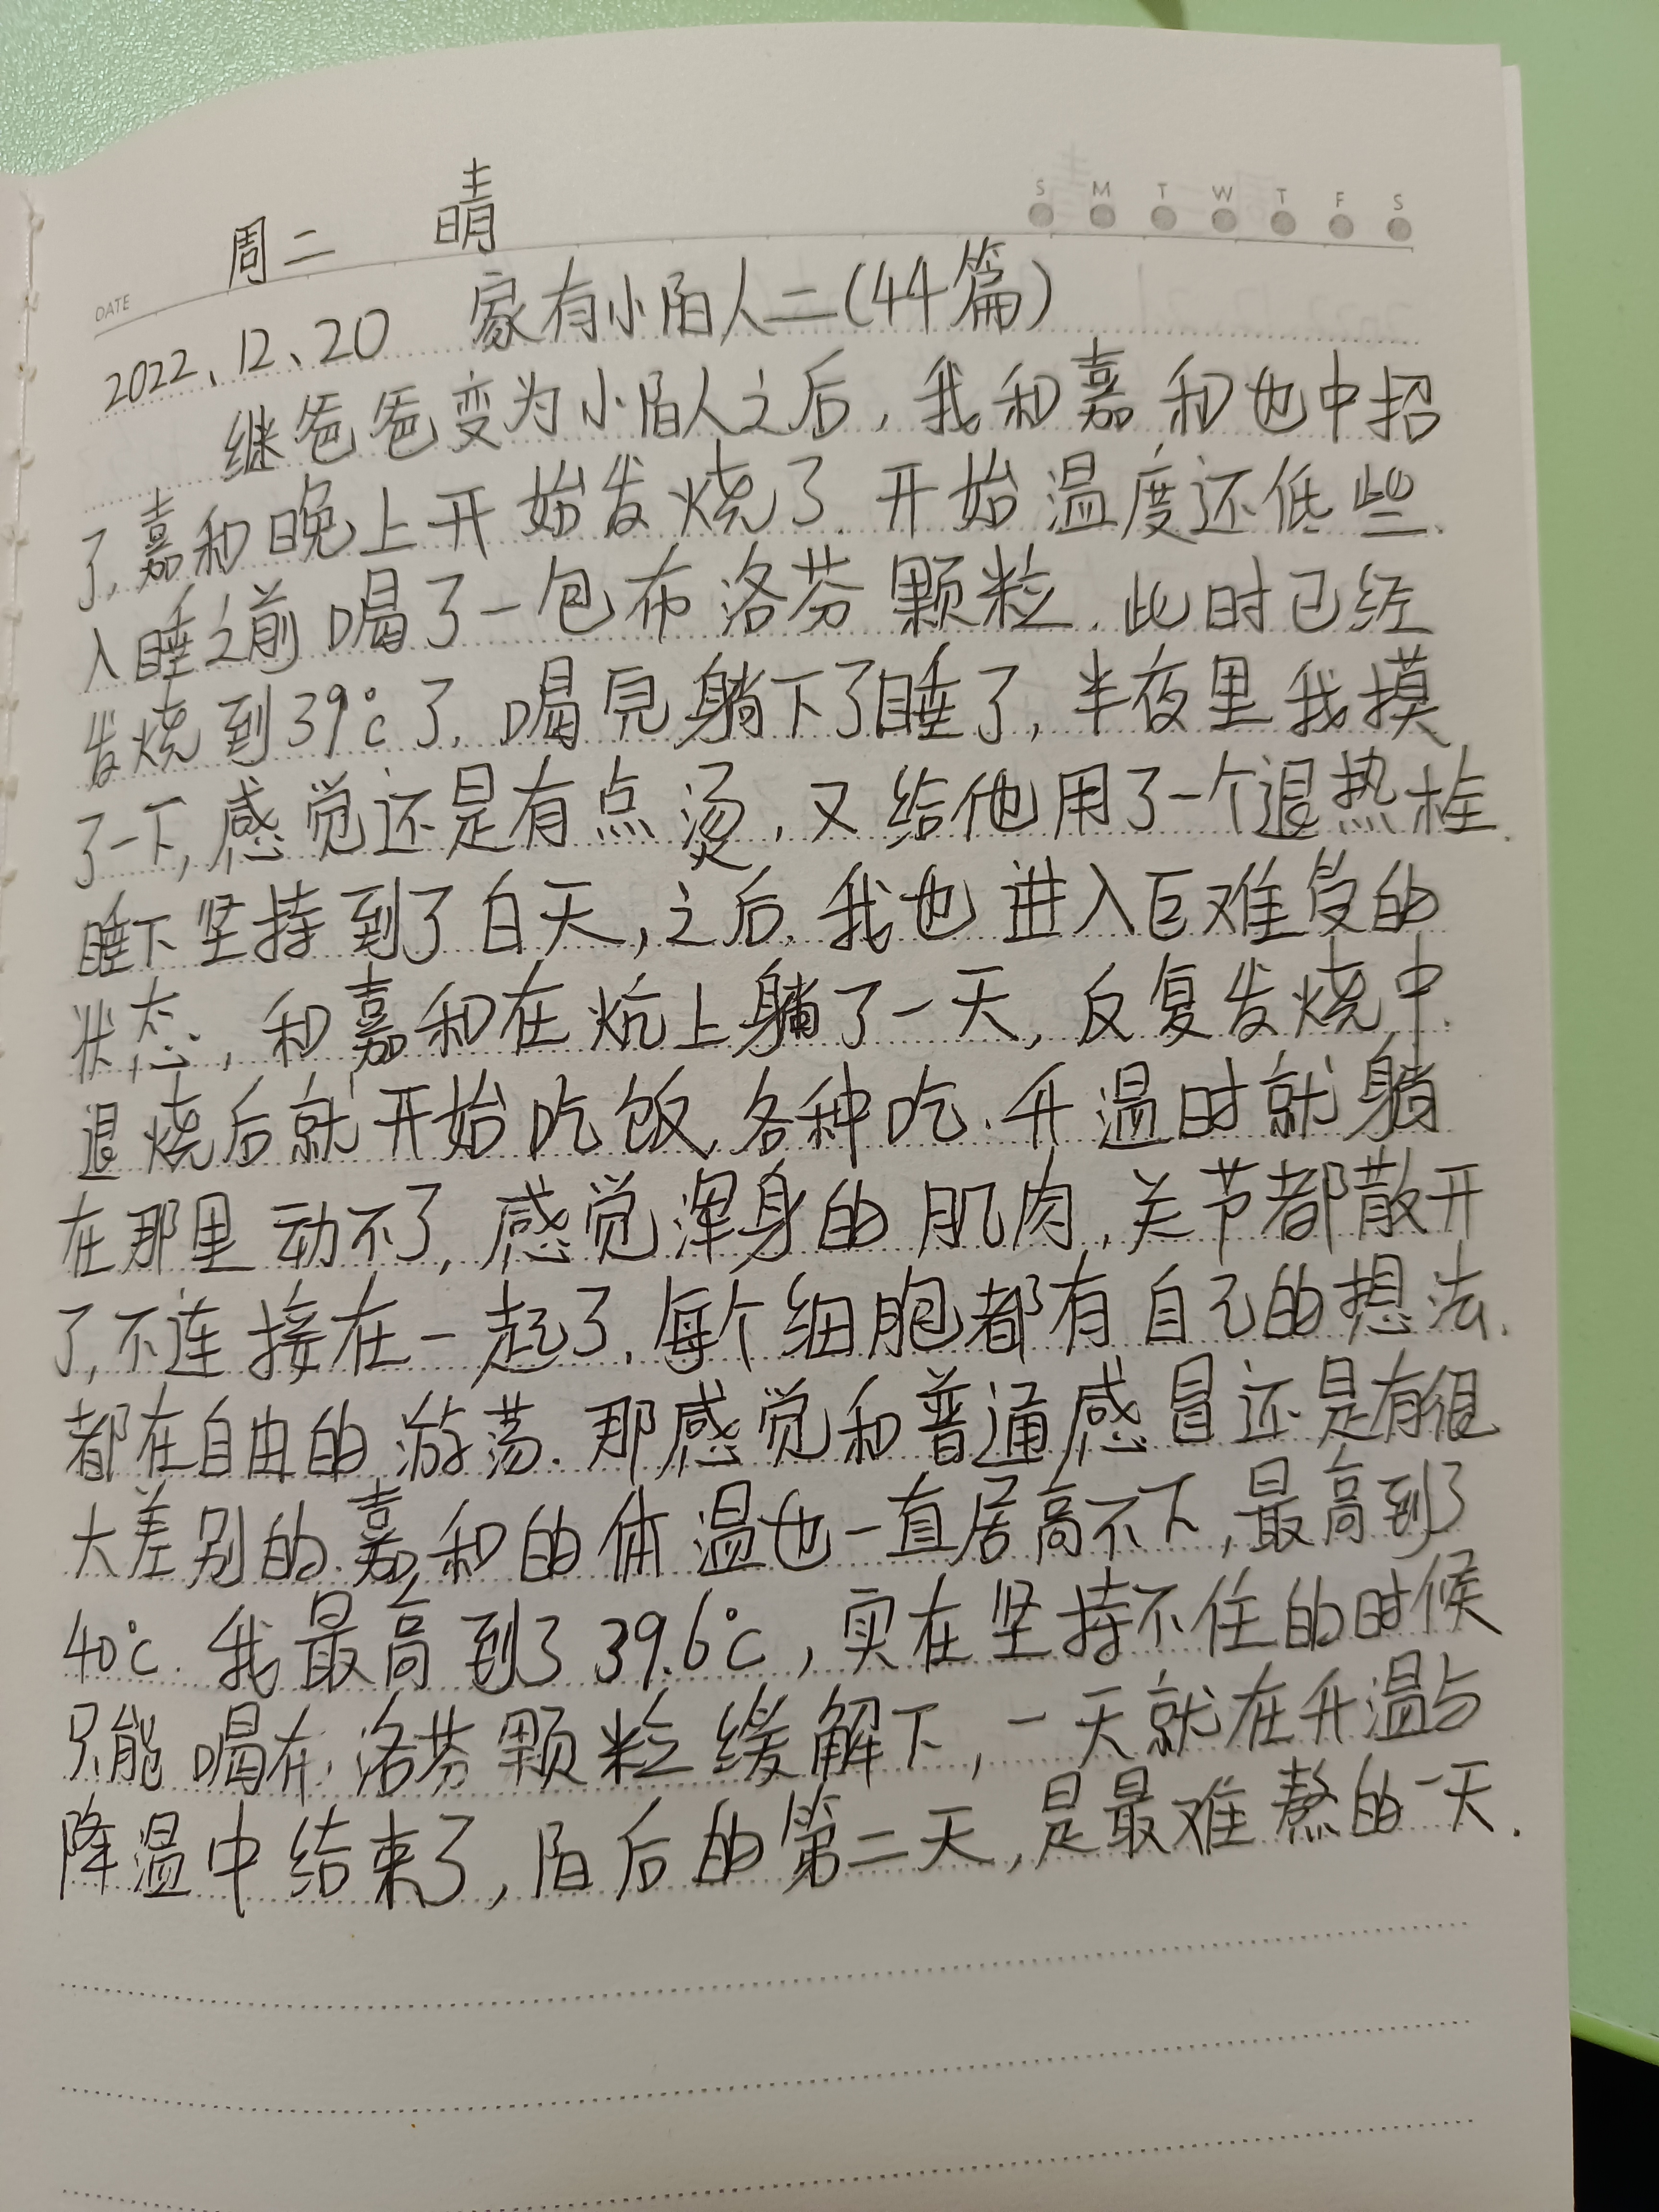 周二 晴
S M T W T F S
DATE
2022、12、20 家有小陌人二(44篇)
继爸爸变为小陌人之后,我和嘉和也中招
了.嘉和晚上开始发烧了.开始温度还低些.
入睡之前喝了一包布洛芬颗粒.此时已经
发烧到39℃了.喝完躺下了睡了,半夜里我摸
了一下,感觉还是有点烫,又给他用了一个退热栓.
睡下坚持到了白天,之后.我也进入巨难受的
状态,和嘉和在炕上躺了一天,反复发烧中.
退烧后就开始吃饭.各种吃.升温时就躺
在那里动不了,感觉浑身的肌肉.关节都散开
了,不连接在一起了.每个细胞都有自己的想法.
都在自由的游荡.那感觉和普通感冒还是有很
大差别的.嘉和的体温也一直居高不下,最高到了
40℃.我最高到了39.6℃,实在坚持不住的时候
只能喝布洛芬颗粒缓解下,一天就在升温与
降温中结束了,陌后的第二天,是最难熬的一天.